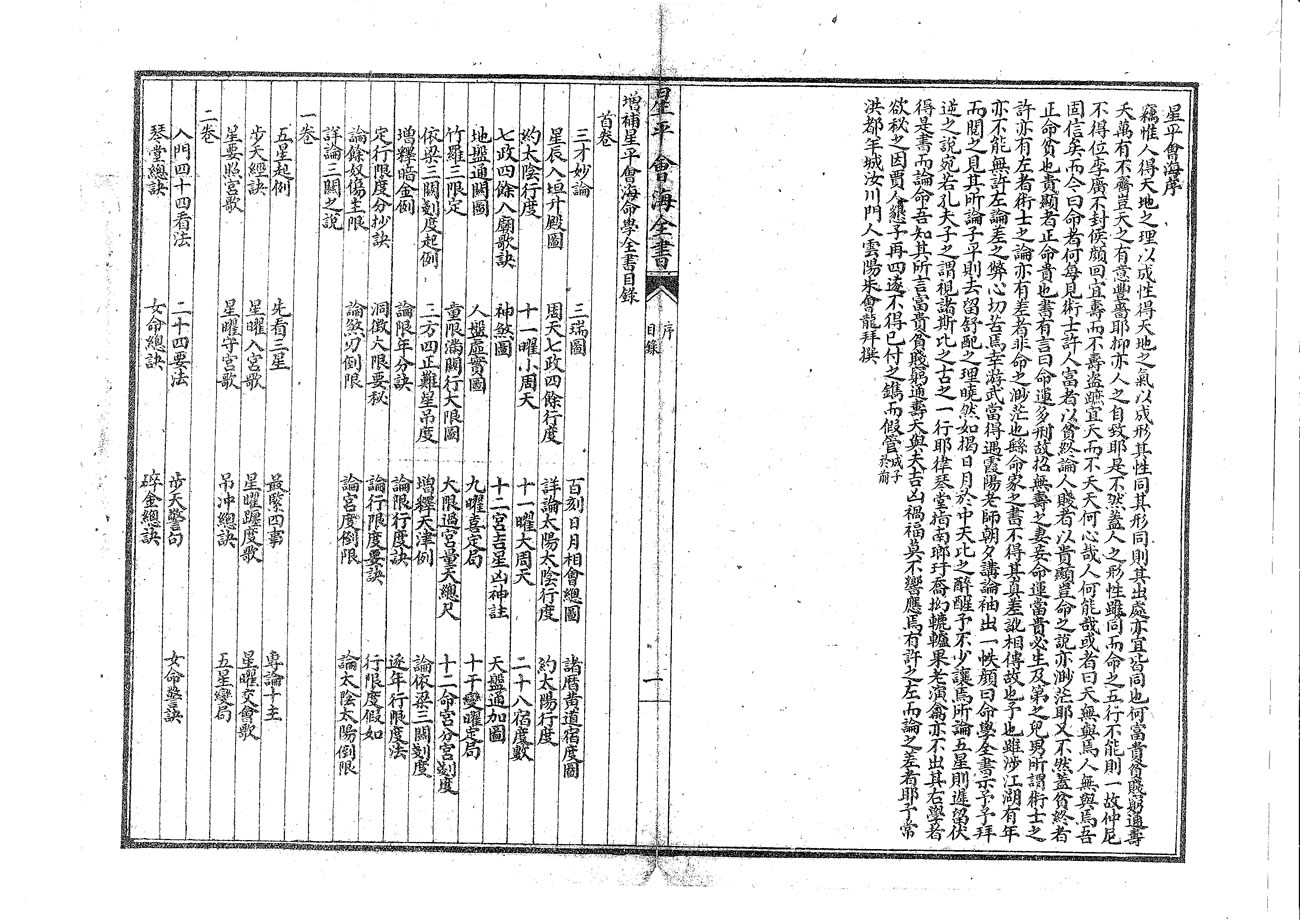 星平會海序
竊惟人得天地之理以成性得天地之氣以成形其性同其形同則其出處亦宜皆同也何富貴貧賤窮通壽
夭萬有不齊豈天之有意豐嗇耶抑亦人之自致耶是不然蓋人之形性雖同而命之五行不能則一故仲尼
不得位李廣不封侯顏回宜壽而不壽盜蹠宜夭而不夭天何心哉人何能哉或者曰天無與焉人無與焉吾
固信矣而今曰命者何每見術士許人富者以貧終論人賤者以貴顯豈命之說亦渺茫耶又不然蓋貧終者
正命貧也貴顯者正命貴也書有言曰命運多刑故招無壽之妻妾命運當貴必生及第之兒男所謂術士之
許亦有左者術士之論亦有差者非命之渺茫也繇命家之書不得其真差訛相傳故也予也雖涉江湖有年
亦不能無許左論差之弊心切苦焉幸游武當得遇霞陽老師朝夕講論袖出一帙顏曰命學全書示予予拜
而閱之見其所論子平則去留舒配之理曉然如揭日月於中天比之醉醒子不少讓焉所論五星則遲留伏
逆之說宛若孔夫子之謂視諸斯比之古之一行耶律琴堂指南瑯玕喬拗轆轤果老演禽亦不出其右學者
得是書而論命吾知其所言富貴貧賤窮通壽夭與夫吉凶禍福莫不響應焉有許之左而論之差者耶予常
欲秘之因賈人懇予再四遂不得已付之鐫而假管成子於前
洪都年城汝川門人雲陽朱會龍拜撰
星平會海全書
序
目錄
一
增補星平會海命學全書目錄
首卷
三才妙論 三瑞圖 百刻日月相會總圖 諸曆黃道宿度圖
星辰入垣升殿圖 周天七政四餘行度 詳論太陽太陰行度 約太陽行度
約太陰行度 十一曜小周天 十一曜大周天 二十八宿度數
七政四餘入廟歌訣 神煞圖 十二宮吉星凶神註 天盤通加圖
地盤通關圖 人盤虛實圖 九曜喜定局 十干變曜定局
竹羅三限定 童限滿關行大限圖 大限過宮量天總尺 十二命宮分宮剗度
依梁三關剗度起例 三方四正難星吊度 增釋天津例 論依梁三關剗度
增釋暗金倒 論限年分訣 論限行度訣 逐年行限度法
定行限度分抄訣 洞微大限要秘 論行限度要訣 行限度假如
論餘奴傷主限 論煞刃倒限 論宮度倒限 論太陰太陽倒限
詳論三關之說
一卷
五星起例 先看三星 最緊四事 專論十主
步天經訣 星曜入宮歌 星曜躔度歌 星曜交會歌
星要照宮歌 星曜守宮歌 吊冲總訣 五星變局
二卷
入門四十四看法 二十四要法 步天警句 女命警訣
琴堂總訣 女命總訣 碎金總訣